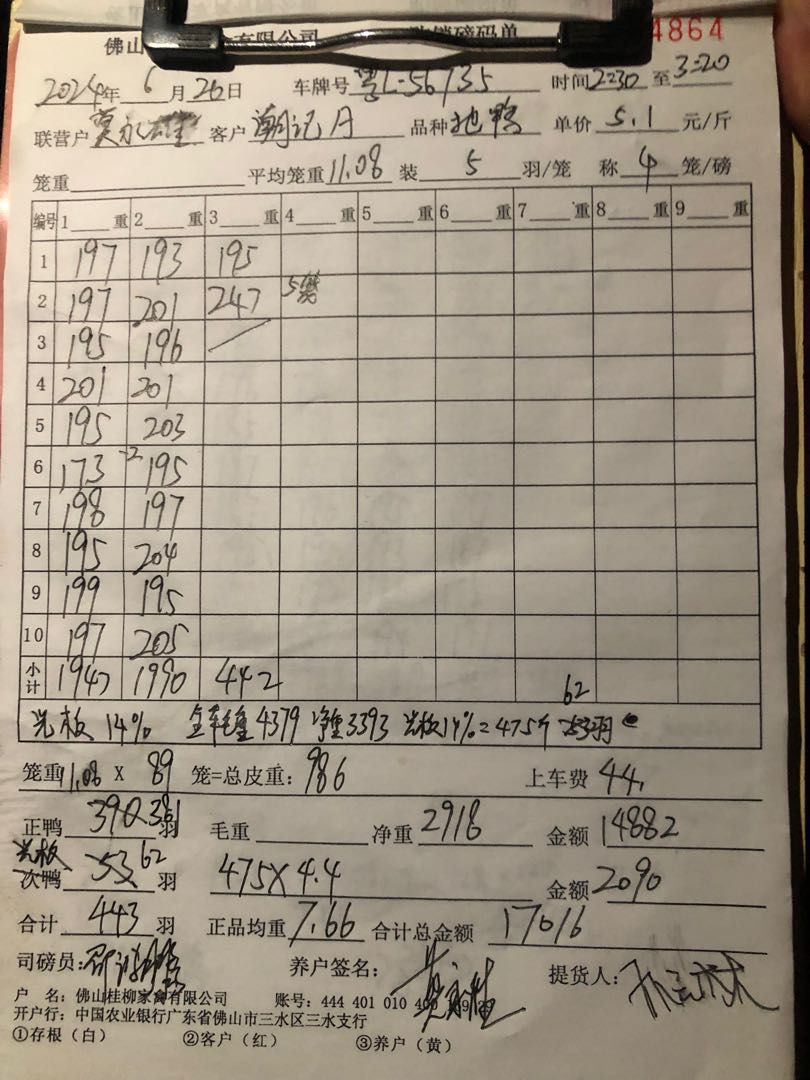 佛山 有限公司 购销磅码单 4864
2024年 6 月 26 日 车牌号 粤L-56735 时间 2:30 至 3:20
联营户 客户 潮记A 品种 地鸭 单价 5.1 元/斤
笼重 平均笼重 11.08 装 5 羽/笼 称 4 笼/磅
编号 1 重 2 重 3 重 4 重 5 重 6 重 7 重 8 重 9 重
1 197 193 195
2 197 201 247 5笼
3 195 196
4 201 201
5 195 203
6 173 -2 195
7 198 197
8 195 204
9 199 195
10 197 205
小计 1947 1990 442
62
光板 14% 全车毛重 4379 净重 3393 光板14%=475斤 53羽
笼重 11.08 X 89 笼=总皮重: 986 上车费 44
正鸭 390 381 羽 毛重 净重 2918 金额 14882
光板
次鸭 53 62 羽 475X4.4 金额 2090
合计 443 羽 正品均重 7.66 合计总金额 17016
司磅员: 养户签名: 提货人:
户 名:佛山桂柳家禽有限公司 账号:444 401 010 40
开户行:中国农业银行广东省佛山市三水区三水支行
①存根（白） ②客户（红） ③养户（黄）